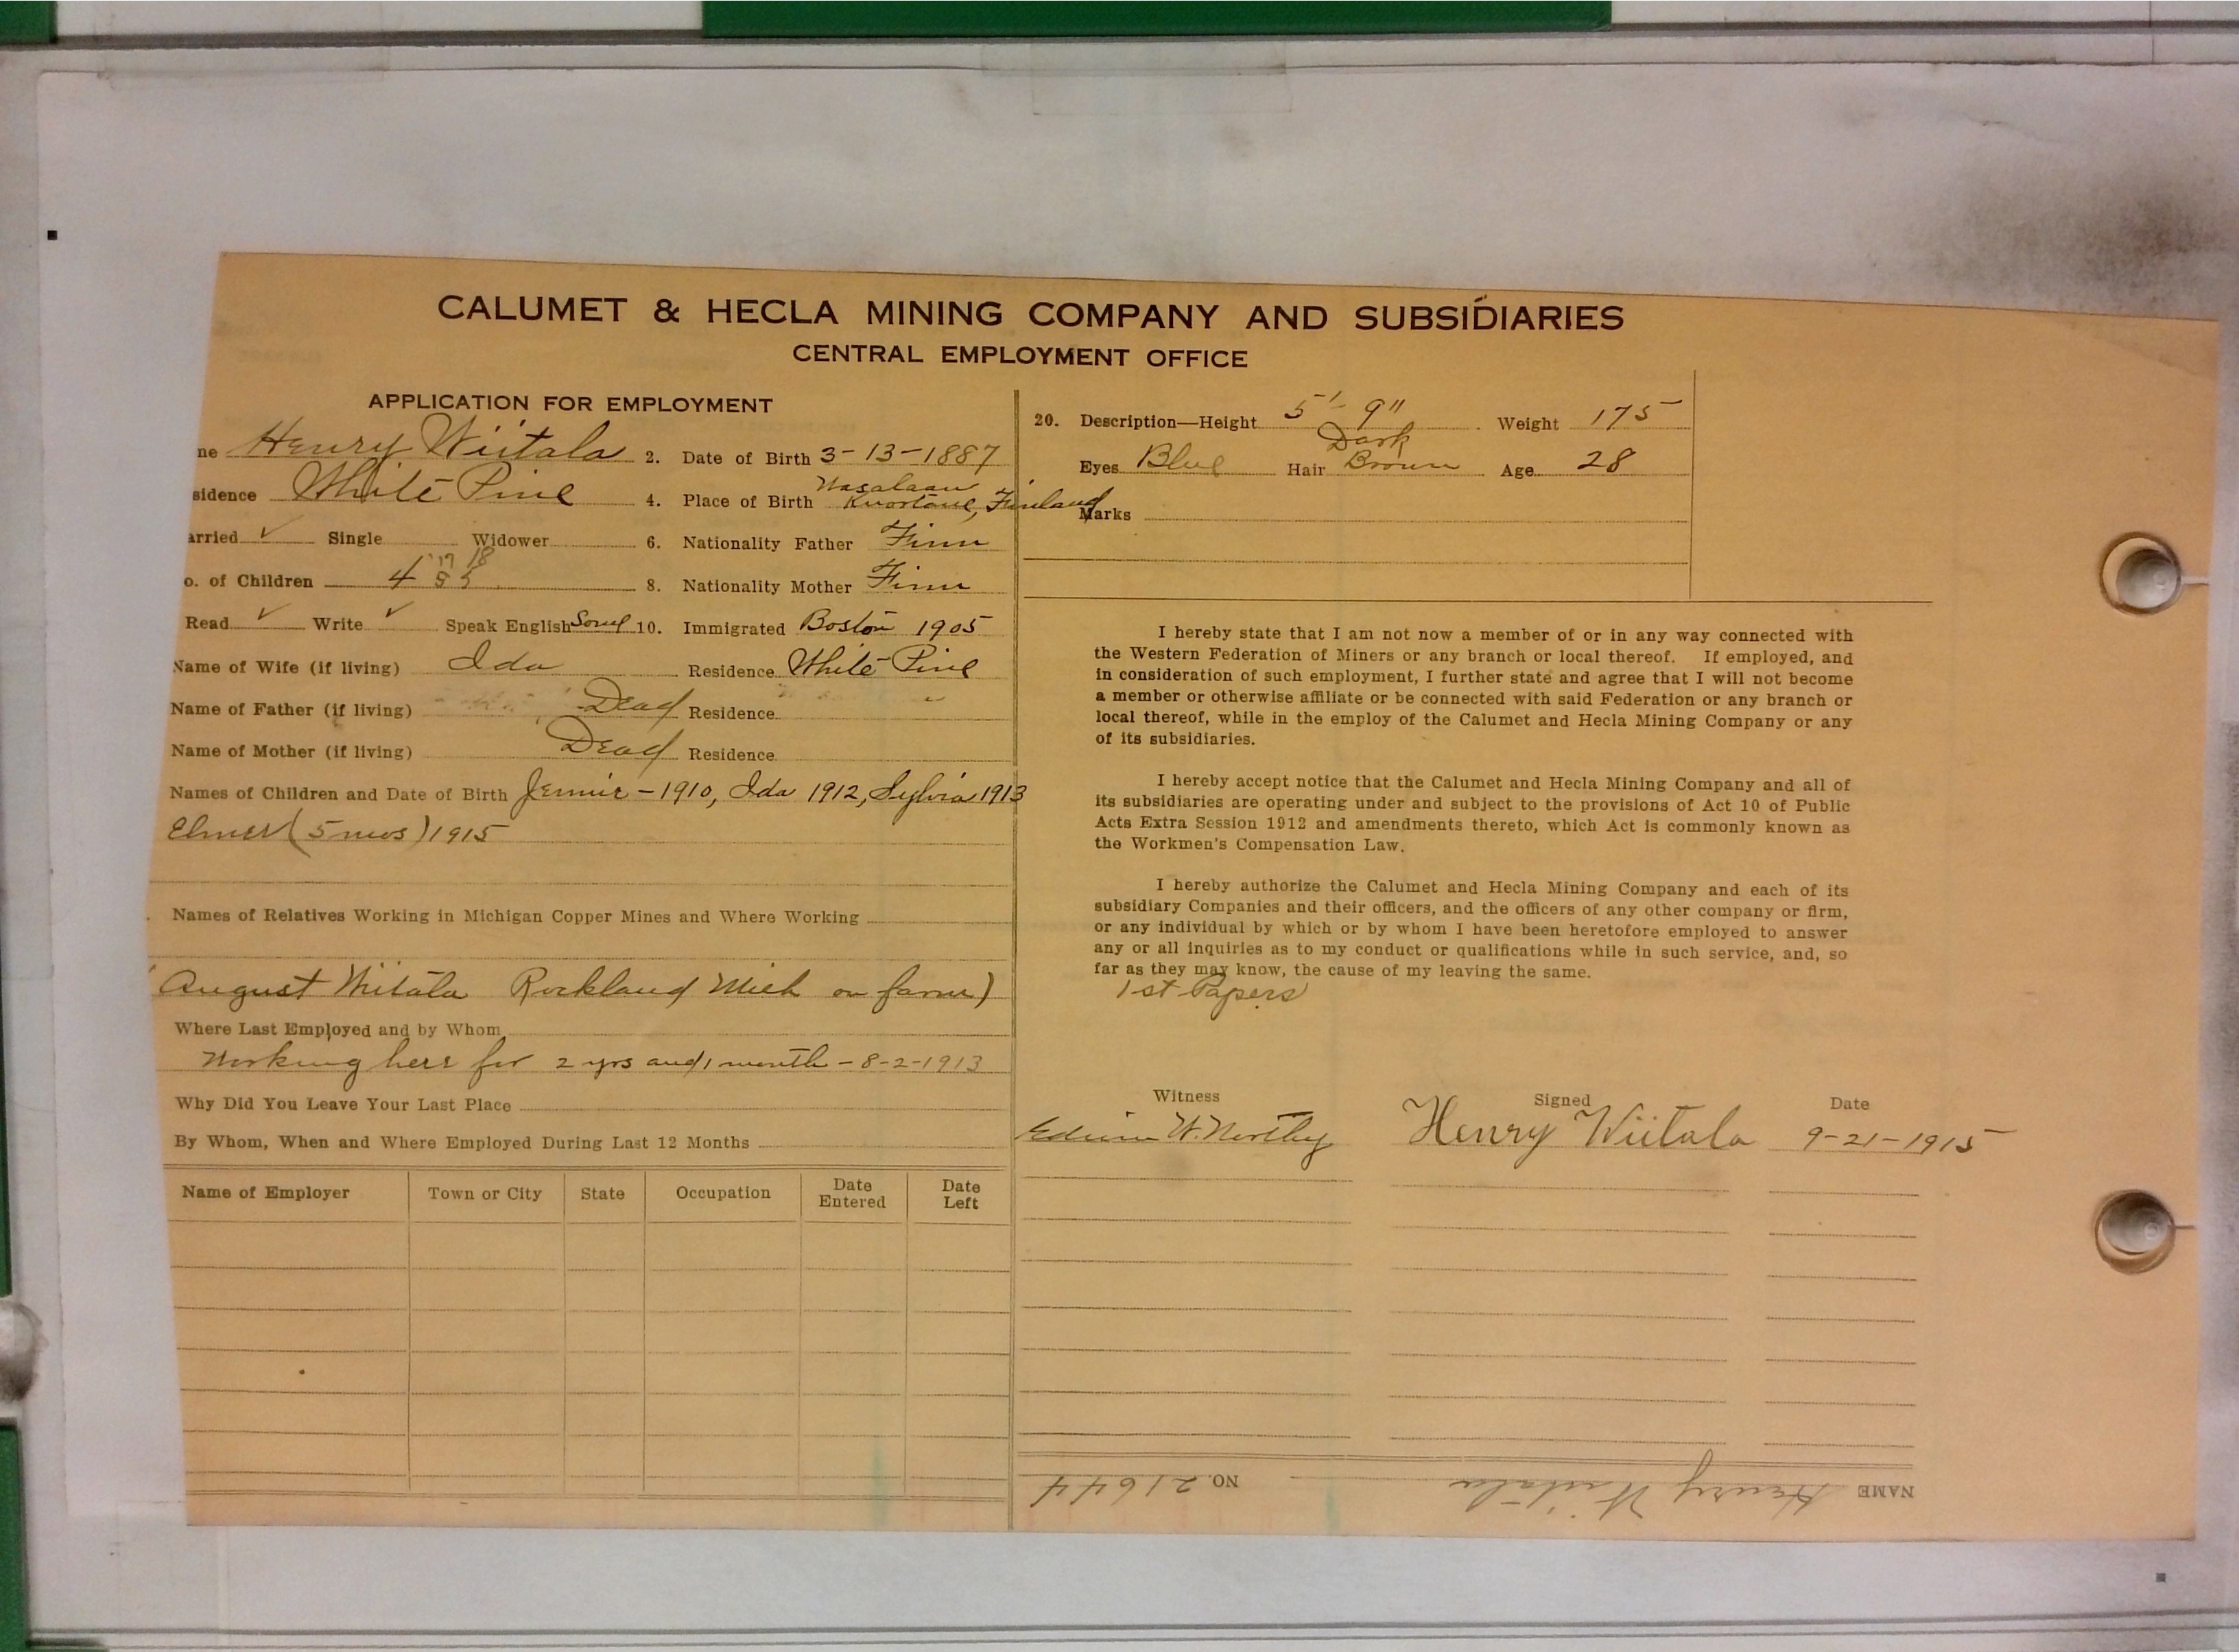 CALUMET & HECLA MINING COMPANY AND SUBSIDIARIES
CENTRAL EMPLOYMENT OFFICE
APPLICATION FOR EMPLOYMENT
ne Henry Wiitala 2. Date of Birth 3-13-1887
sidence White Pine 4. Place of Birth Kuortane, Finland
arried ✓ Single Widower 6. Nationality Father Finn
'17 18
o. of Children 4 5 5 8. Nationality Mother Finn
Read ✓ Write ✓ Speak English Some 10. Immigrated Boston 1905
Name of Wife (if living) Ida Residence White Pine
Name of Father (if living) Dead Residence
Name of Mother (if living) Dead Residence
Names of Children and Date of Birth Jennie - 1910, Ida 1912, Sylvia 1913
Elmer (5 mos) 1915
Names of Relatives Working in Michigan Copper Mines and Where Working
(August Wiitala Rockland Mich on farm)
Where Last Employed and by Whom
Working here for 2 yrs and 1 month - 8-2-1913
Why Did You Leave Your Last Place
By Whom, When and Where Employed During Last 12 Months
Name of Employer Town or City State Occupation Date Entered Date Left
20. Description—Height 5'-9" Weight 175
Dark
Eyes Blue Hair Brown Age 28
Marks
I hereby state that I am not now a member of or in any way connected with
the Western Federation of Miners or any branch or local thereof. If employed, and
in consideration of such employment, I further state and agree that I will not become
a member or otherwise affiliate or be connected with said Federation or any branch or
local thereof, while in the employ of the Calumet and Hecla Mining Company or any
of its subsidiaries.
I hereby accept notice that the Calumet and Hecla Mining Company and all of
its subsidiaries are operating under and subject to the provisions of Act 10 of Public
Acts Extra Session 1912 and amendments thereto, which Act is commonly known as
the Workmen's Compensation Law.
I hereby authorize the Calumet and Hecla Mining Company and each of its
subsidiary Companies and their officers, and the officers of any other company or firm,
or any individual by which or by whom I have been heretofore employed to answer
any or all inquiries as to my conduct or qualifications while in such service, and, so
far as they may know, the cause of my leaving the same.
1st Papers
Witness Signed Date
Edwin W. Northey Henry Wiitala 9-21-1915
NAME Henry Wiitala NO. 21644